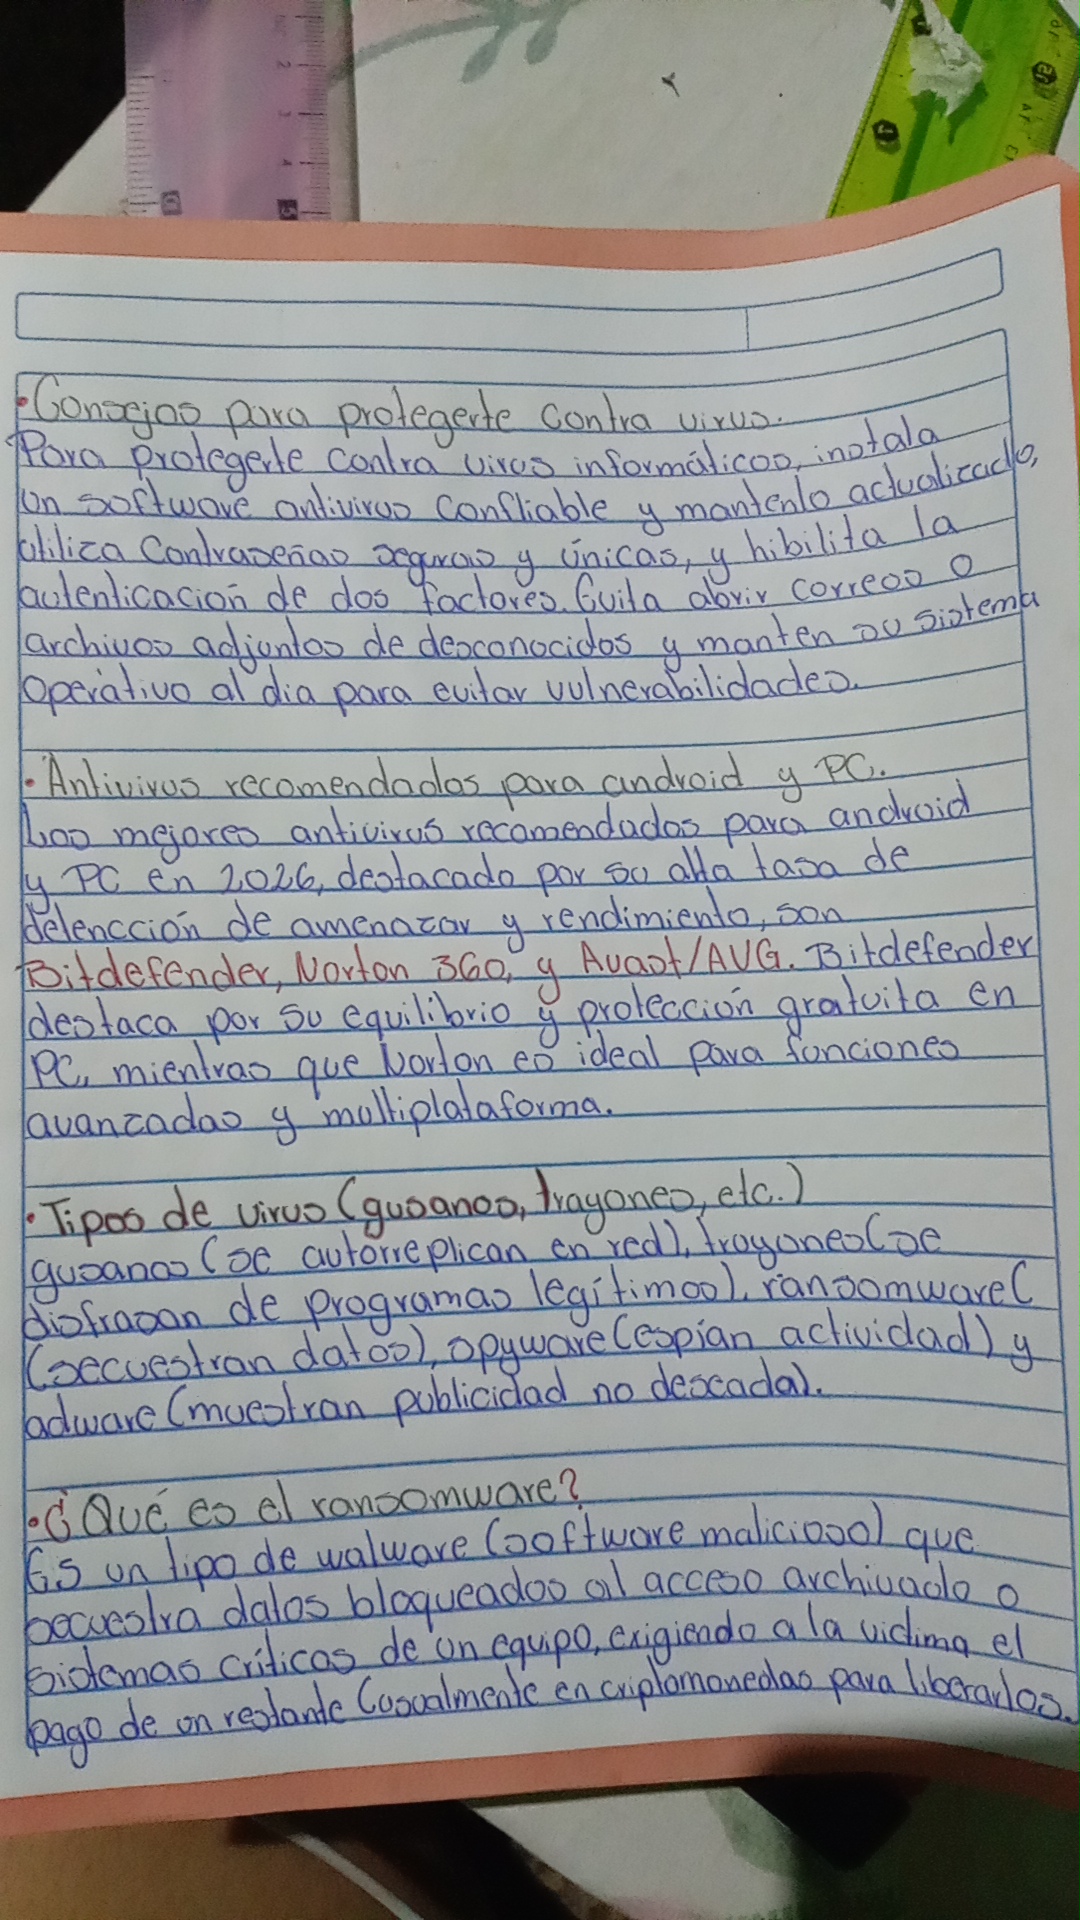 •Consejos para protegerte contra virus.
Para protegerte contra virus informáticos, instala
un software antivirus confliable y mantenlo actualizado,
utiliza contraseñas seguras y únicas, y hibilita la
autenticación de dos factores. Evita abrir correos o
archivos adjuntos de desconocidos y manten su sistema
operativo al día para evitar vulnerabilidades.
• Antivirus recomendados para android y PC.
Los mejores antivirus recomendados para android
y PC en 2026, destacado por su alta tasa de
delencción de amenazar y rendimiento, son
Bitdefender, Norton 360, y Avast/AVG. Bitdefender
destaca por su equilibrio y protección gratuita en
PC, mientras que Norton es ideal para funciones
avanzadas y multiplataforma.
• Tipos de virus (gusanos, trayones, etc.)
gusanos (se autorreplican en red), troyones (se
disfrasan de programas legítimos), ransomware (
(secuestran datos), spyware (espían actividad) y
adware (muestran publicidad no deseada).
• ¿Qué es el ransomware?
Es un tipo de walware (software malicioso) que
secuestra datos bloqueados al acceso archivado o
sistemas críticas de un equipo, exigiendo a la victima el
pago de un restante (usualmente en criptomonedas para liberarlos.